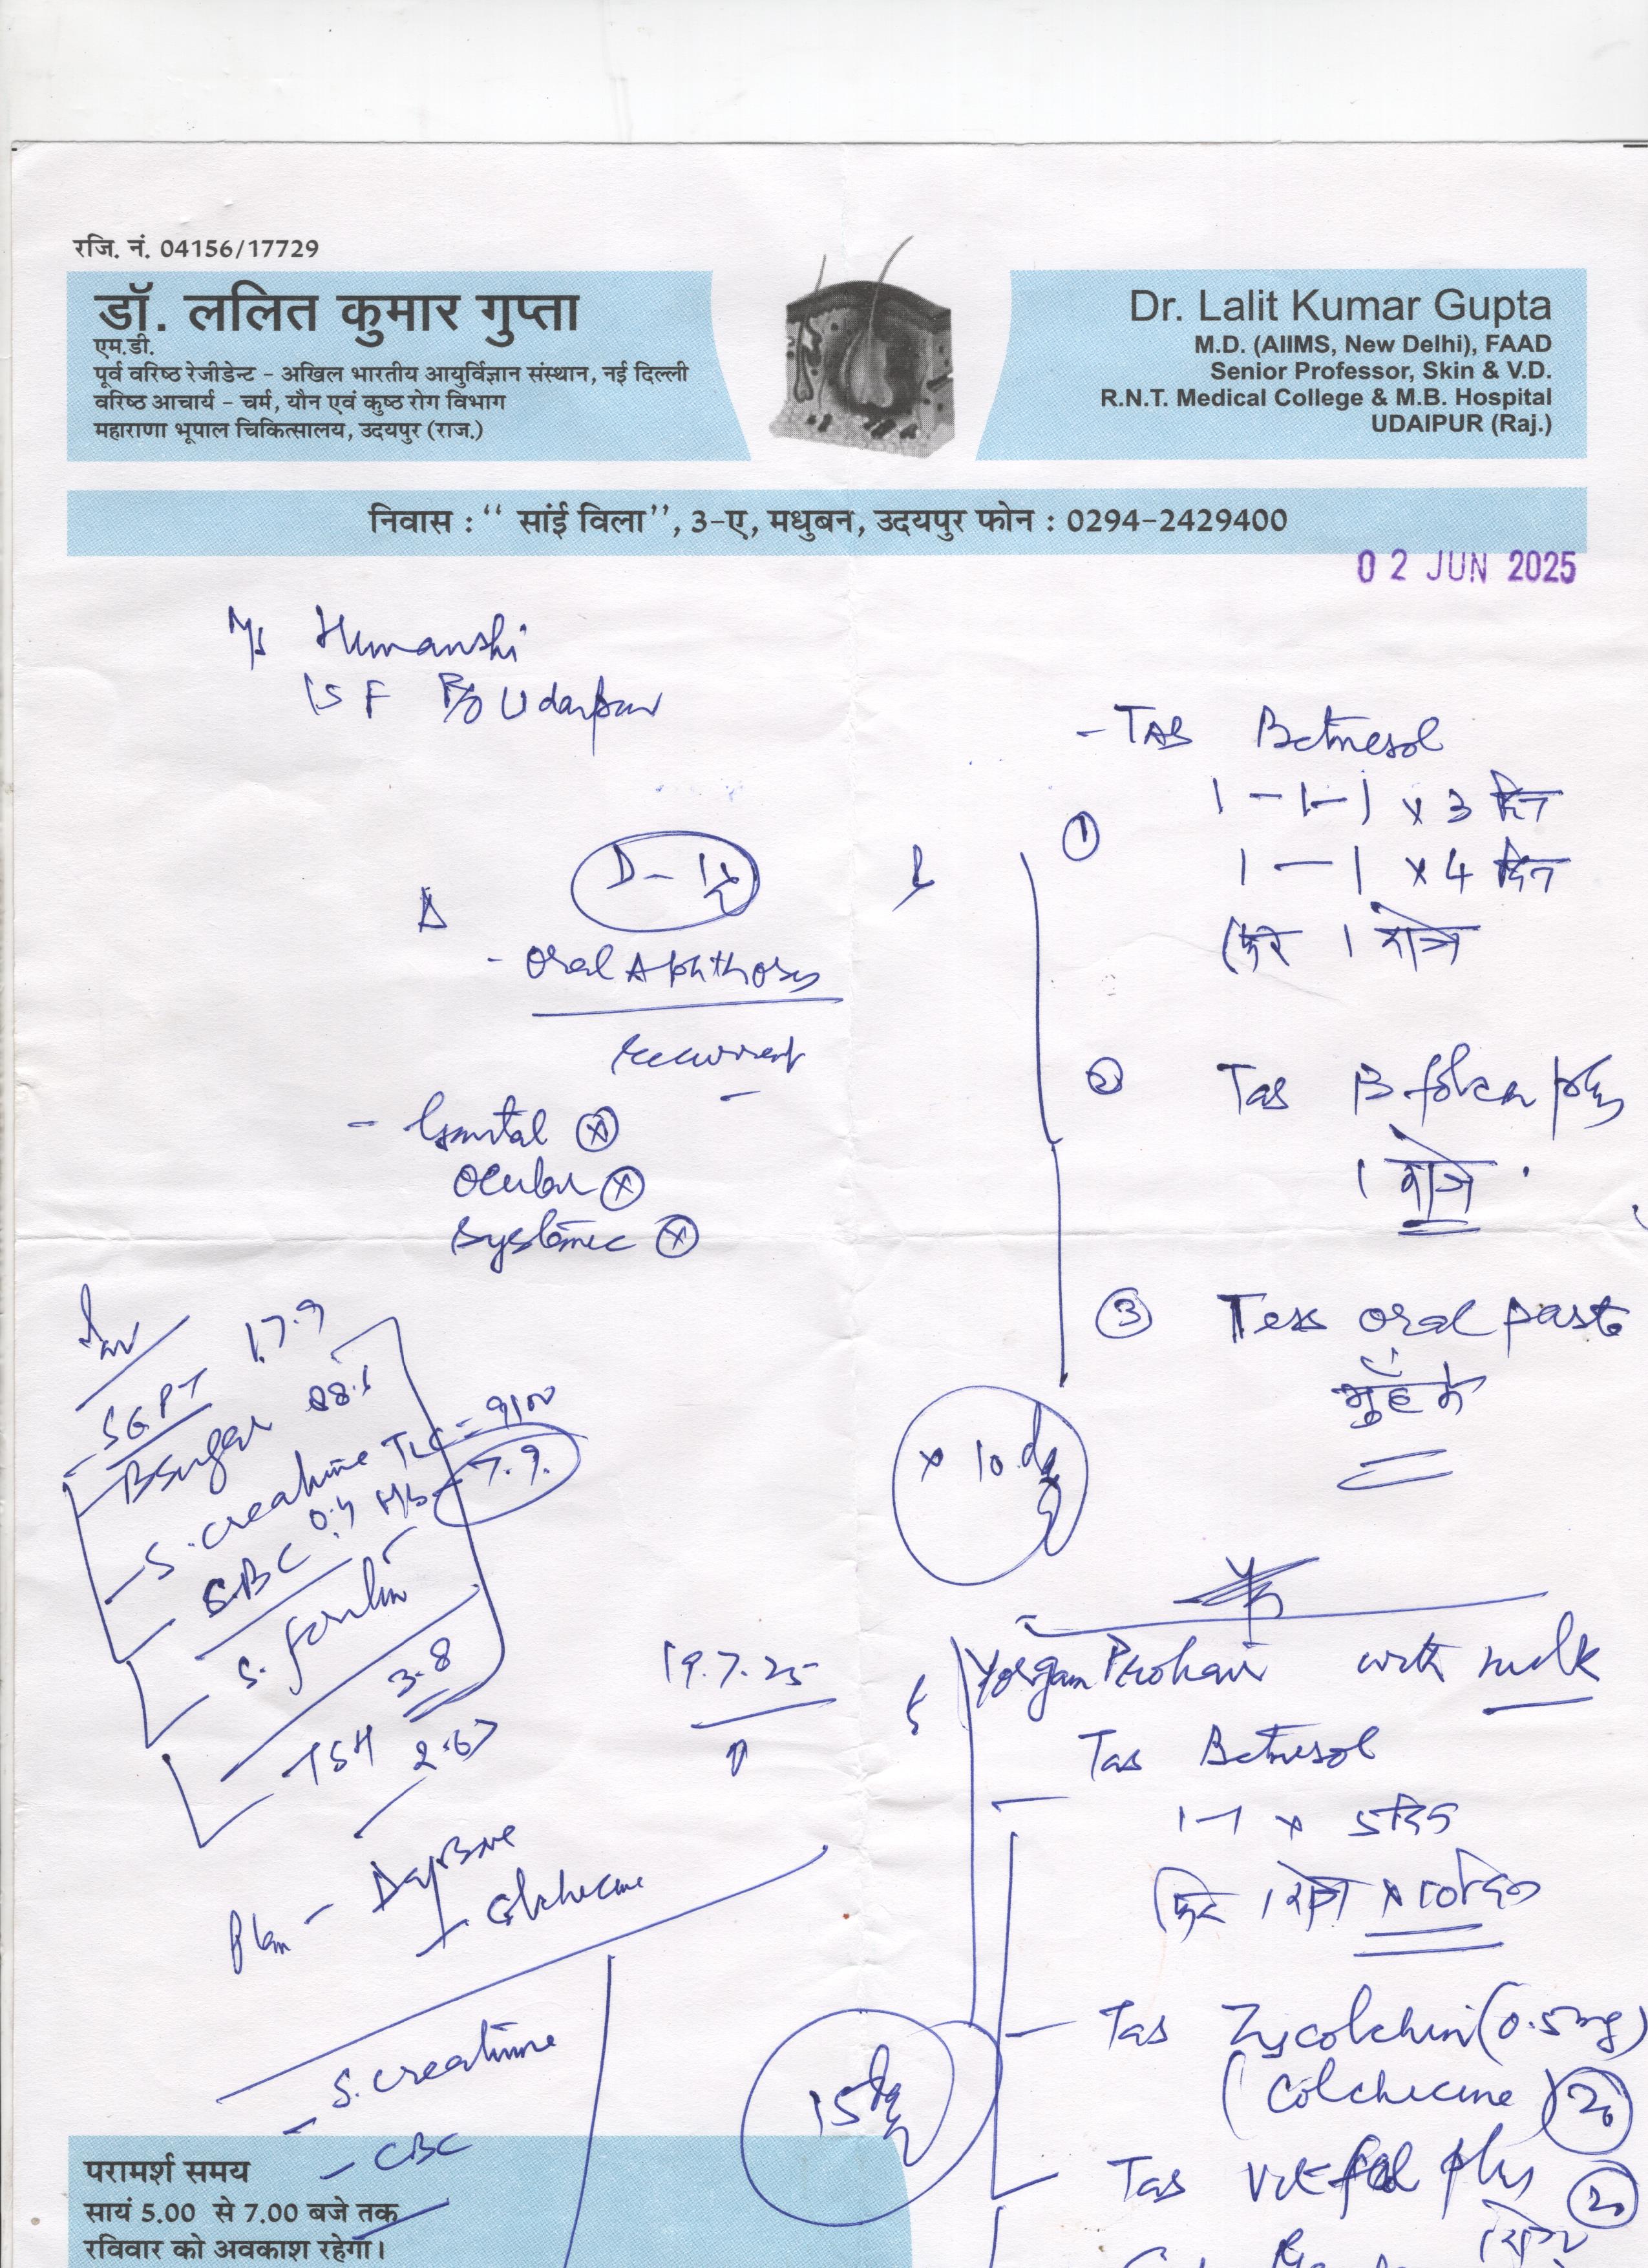 रजि. नं. 04156/17729
डॉ. ललित कुमार गुप्ता
एम.डी.
पूर्व वरिष्ठ रेजीडेन्ट - अखिल भारतीय आयुर्विज्ञान संस्थान, नई दिल्ली
वरिष्ठ आचार्य - चर्म, यौन एवं कुष्ठ रोग विभाग
महाराणा भूपाल चिकित्सालय, उदयपुर (राज.)
Dr. Lalit Kumar Gupta
M.D. (AIIMS, New Delhi), FAAD
Senior Professor, Skin & V.D.
R.N.T. Medical College & M.B. Hospital
UDAIPUR (Raj.)
निवास : “ सांई विला”, 3-ए, मधुबन, उदयपुर फोन : 0294-2429400
02 JUN 2025
Himanshi
15 F R/o Udaipur
- Oral Aphthosis
recurrent
- Genital ⓧ
Ocular ⓧ
Systemic ⓧ
Inv
- SGPT 17.9
B sugar
- S. creatinine TLC = 9100
CBC Hb 7.9
S. ferritin 3.8
- TSH 2.67
Plan - Dapsone
+ Colchicine
- S. creatinine
- CBC
- TAB Betnesol
① 1-1-1 x 3 दिन
1 - 1 x 4 दिन
फिर 1 रोज
② Tab B folcin plus
1 रोज
③ Tess oral paste
मुँह में
x 10 day
19.7.25
with milk
Tab Betnesol
1-1 x 5 दिन
फिर 1 रोज x 10 दिन
15 day
- Tab Zycolchin (0.5mg)
(Colchicine) 20
Tab plus 20
परामर्श समय
सायं 5.00 से 7.00 बजे तक
रविवार को अवकाश रहेगा।